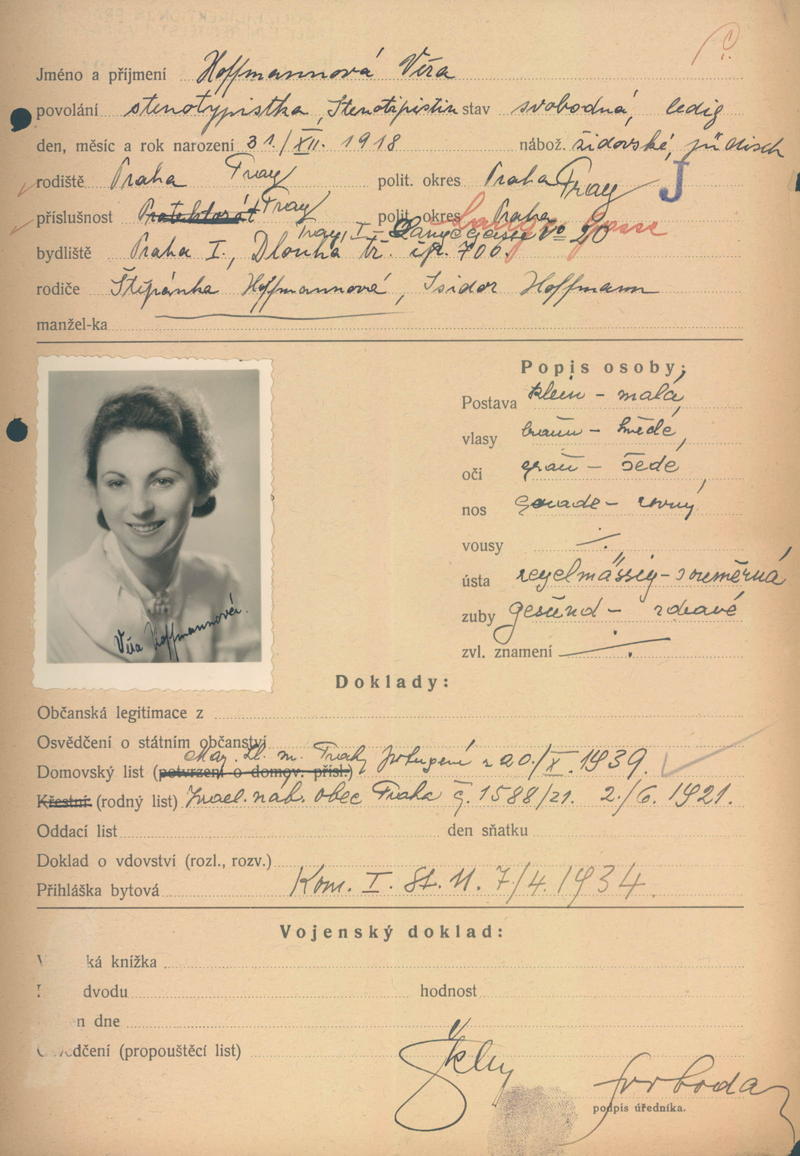 Jméno a příjmení Hoffmannová Věra
povolání stenotypistka, Stenotipistin stav svobodná, ledig
den, měsíc a rok narození 31./XII. 1918 nábož. židovské, jüdisch
rodiště Praha Prag polit. okres Praha Prag J
příslušnost Protektorát Prag polit. okres Praha
Prag, I – Langegasse No 20 Lange Gasse
bydliště Praha I., Dlouhá tř. čp. 700.
rodiče Štěpánka Hoffmannová, Isidor Hoffmann
manžel-ka
Popis osoby:
Postava klein – malá,
vlasy braun – hnědé,
oči grau – šedé,
nos gerade – rovný
vousy ./.
ústa regelmässig – souměrná
zuby gesund – zdravé
zvl. znamení ./.
Věra Hoffmannová.
Doklady:
Občanská legitimace z
Osvědčení o státním občanství
Mag. hl. m. Prahy
Domovský list (potvrzení o domov. přísl.) z 20./X. 1939.
Křestní (rodný list) Israel. náb. obec Praha č. 1588/21. 2./6. 1921.
Oddací list den sňatku
Doklad o vdovství (rozl., rozv.)
Přihláška bytová Kom. I. St. M. 7/4. 1934.
Vojenský doklad:
ká knížka
dvodu hodnost
n dne
dčení (propouštěcí list)
Svoboda
podpis úředníka.